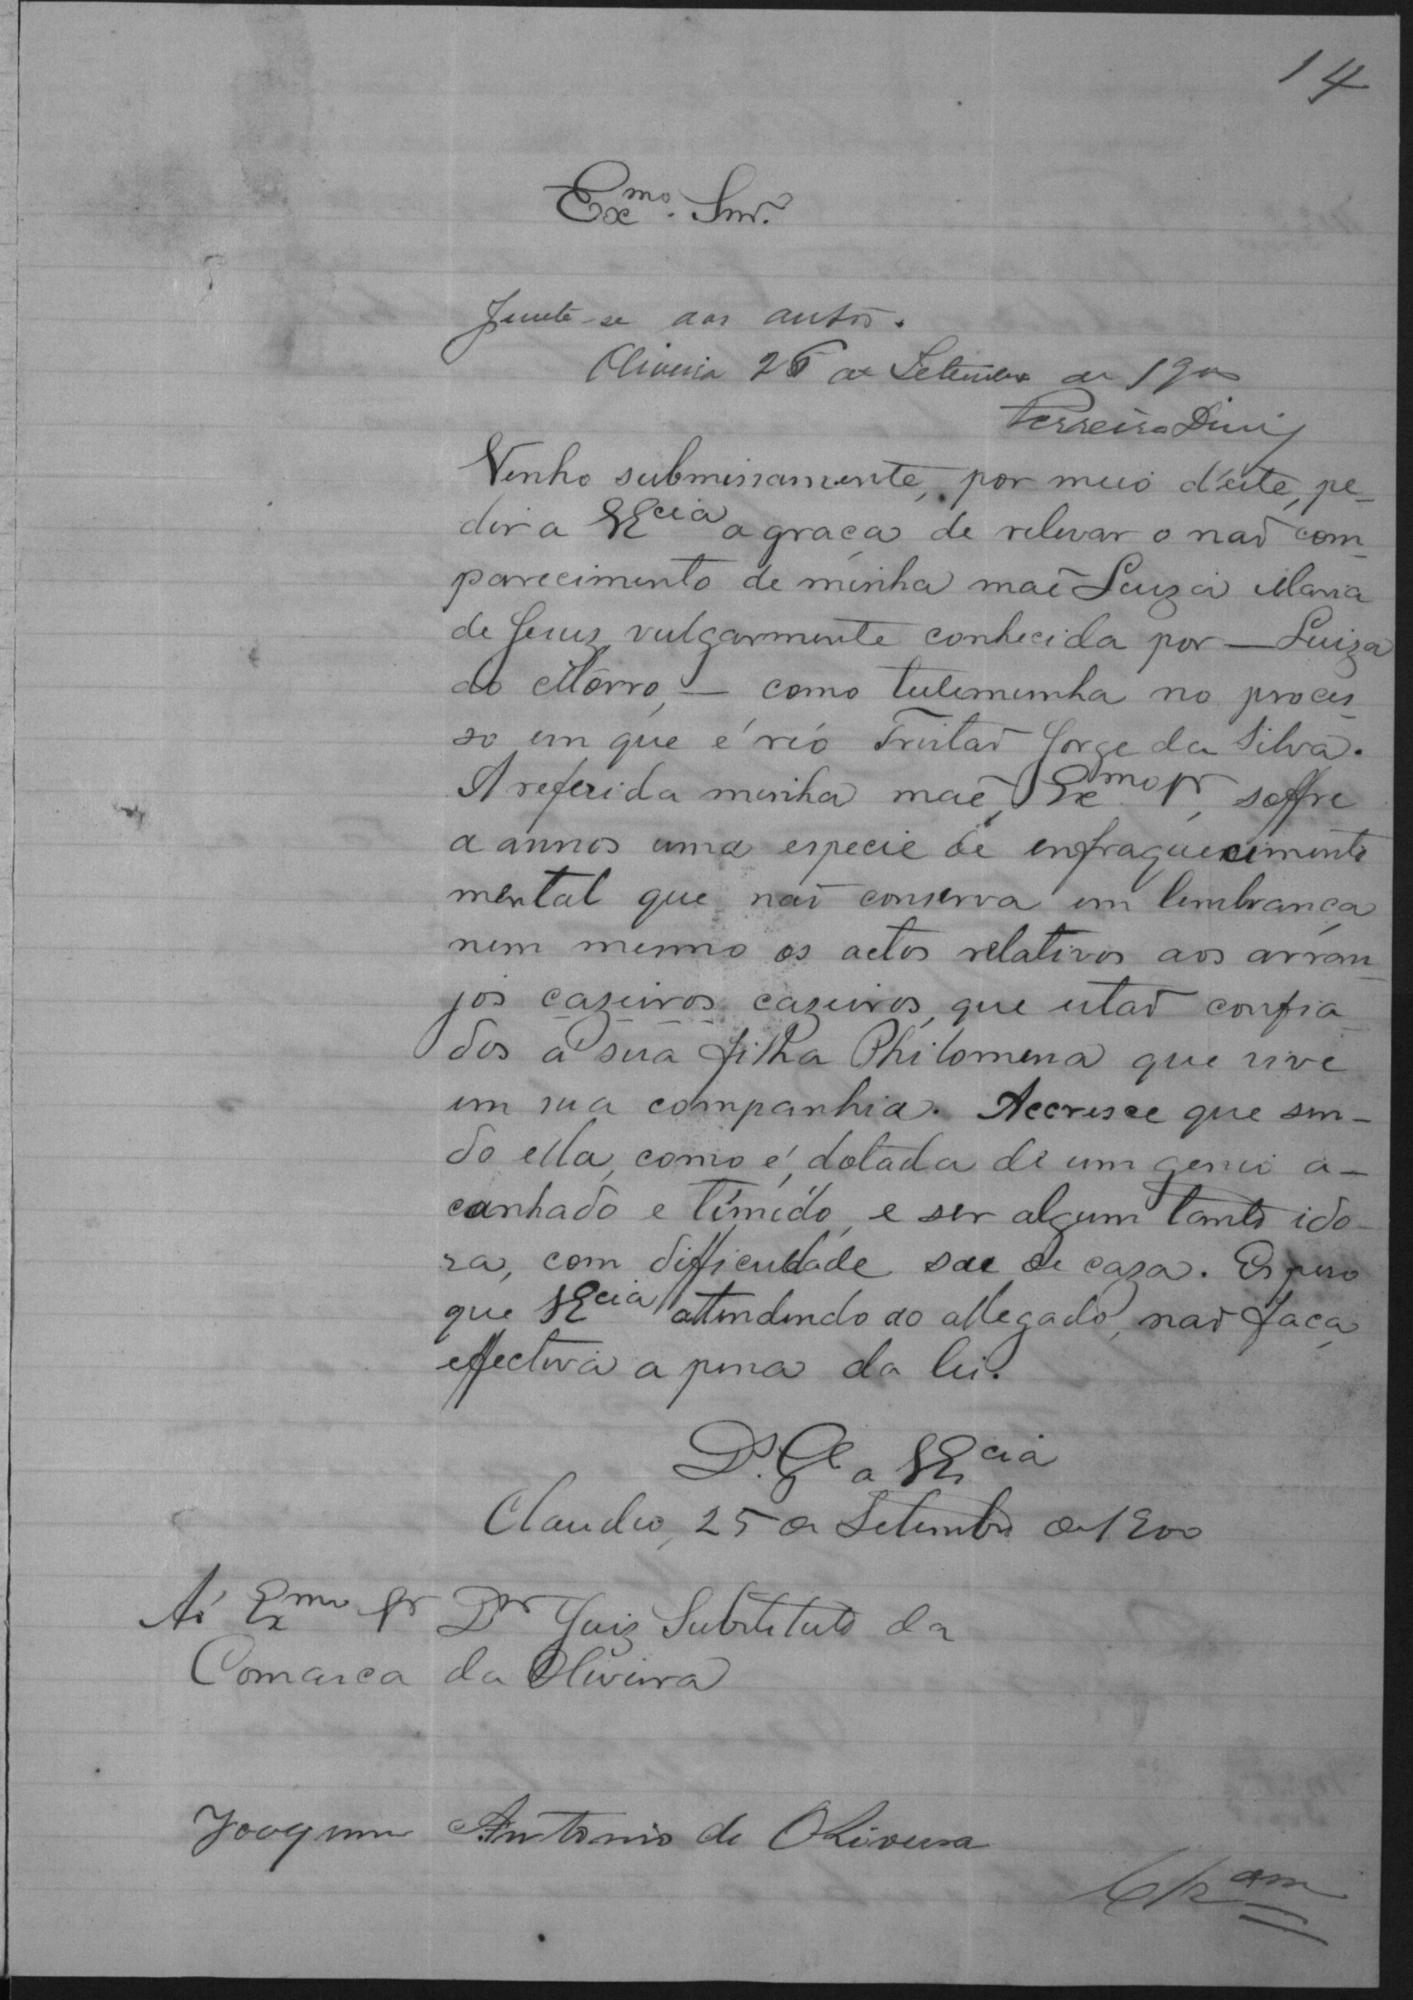 14
Exmo. Snr.
Junte-se aos autos.
Oliveira 26 de Setembro de 1900
Ferreira Diniz
Venho submissamente, por meio d'este, pe-
dir a VEcia a graça de relevar o naõ com-
parecimento de minha maẽ Luiza Maria
de Jesus, vulgarmente conhecida por — Luiza
do Môrro, — como testemunha no proces-
so em que é réo Tristaõ Jorge da Silva.
A referida minha maẽ, Exmo Sr, soffre
a annos uma especie de enfraquecimento
mental que naõ conserva em lembrança
nem mesmo os actos relativos aos arran-
jos cazeiros cazeiros, que estaõ confia-
dos á sua filha Philomena que vive
em sua companhia. Accresce que sen-
do ella, como é, dotada de um genio a-
canhado e timido, e ser algum tanto ido-
za, com difficuldade sae de caza. Espero
que VEcia attendendo ao allegado, naõ faça
effectiva a pena da lei.
Ds. Ge a VEcia
Claudio, 25 de Setembro de 1900
Ao Exmo Sr Dor Juiz Substituto da
Comarca da Oliveira
Joaquim Antonio de Oliveira